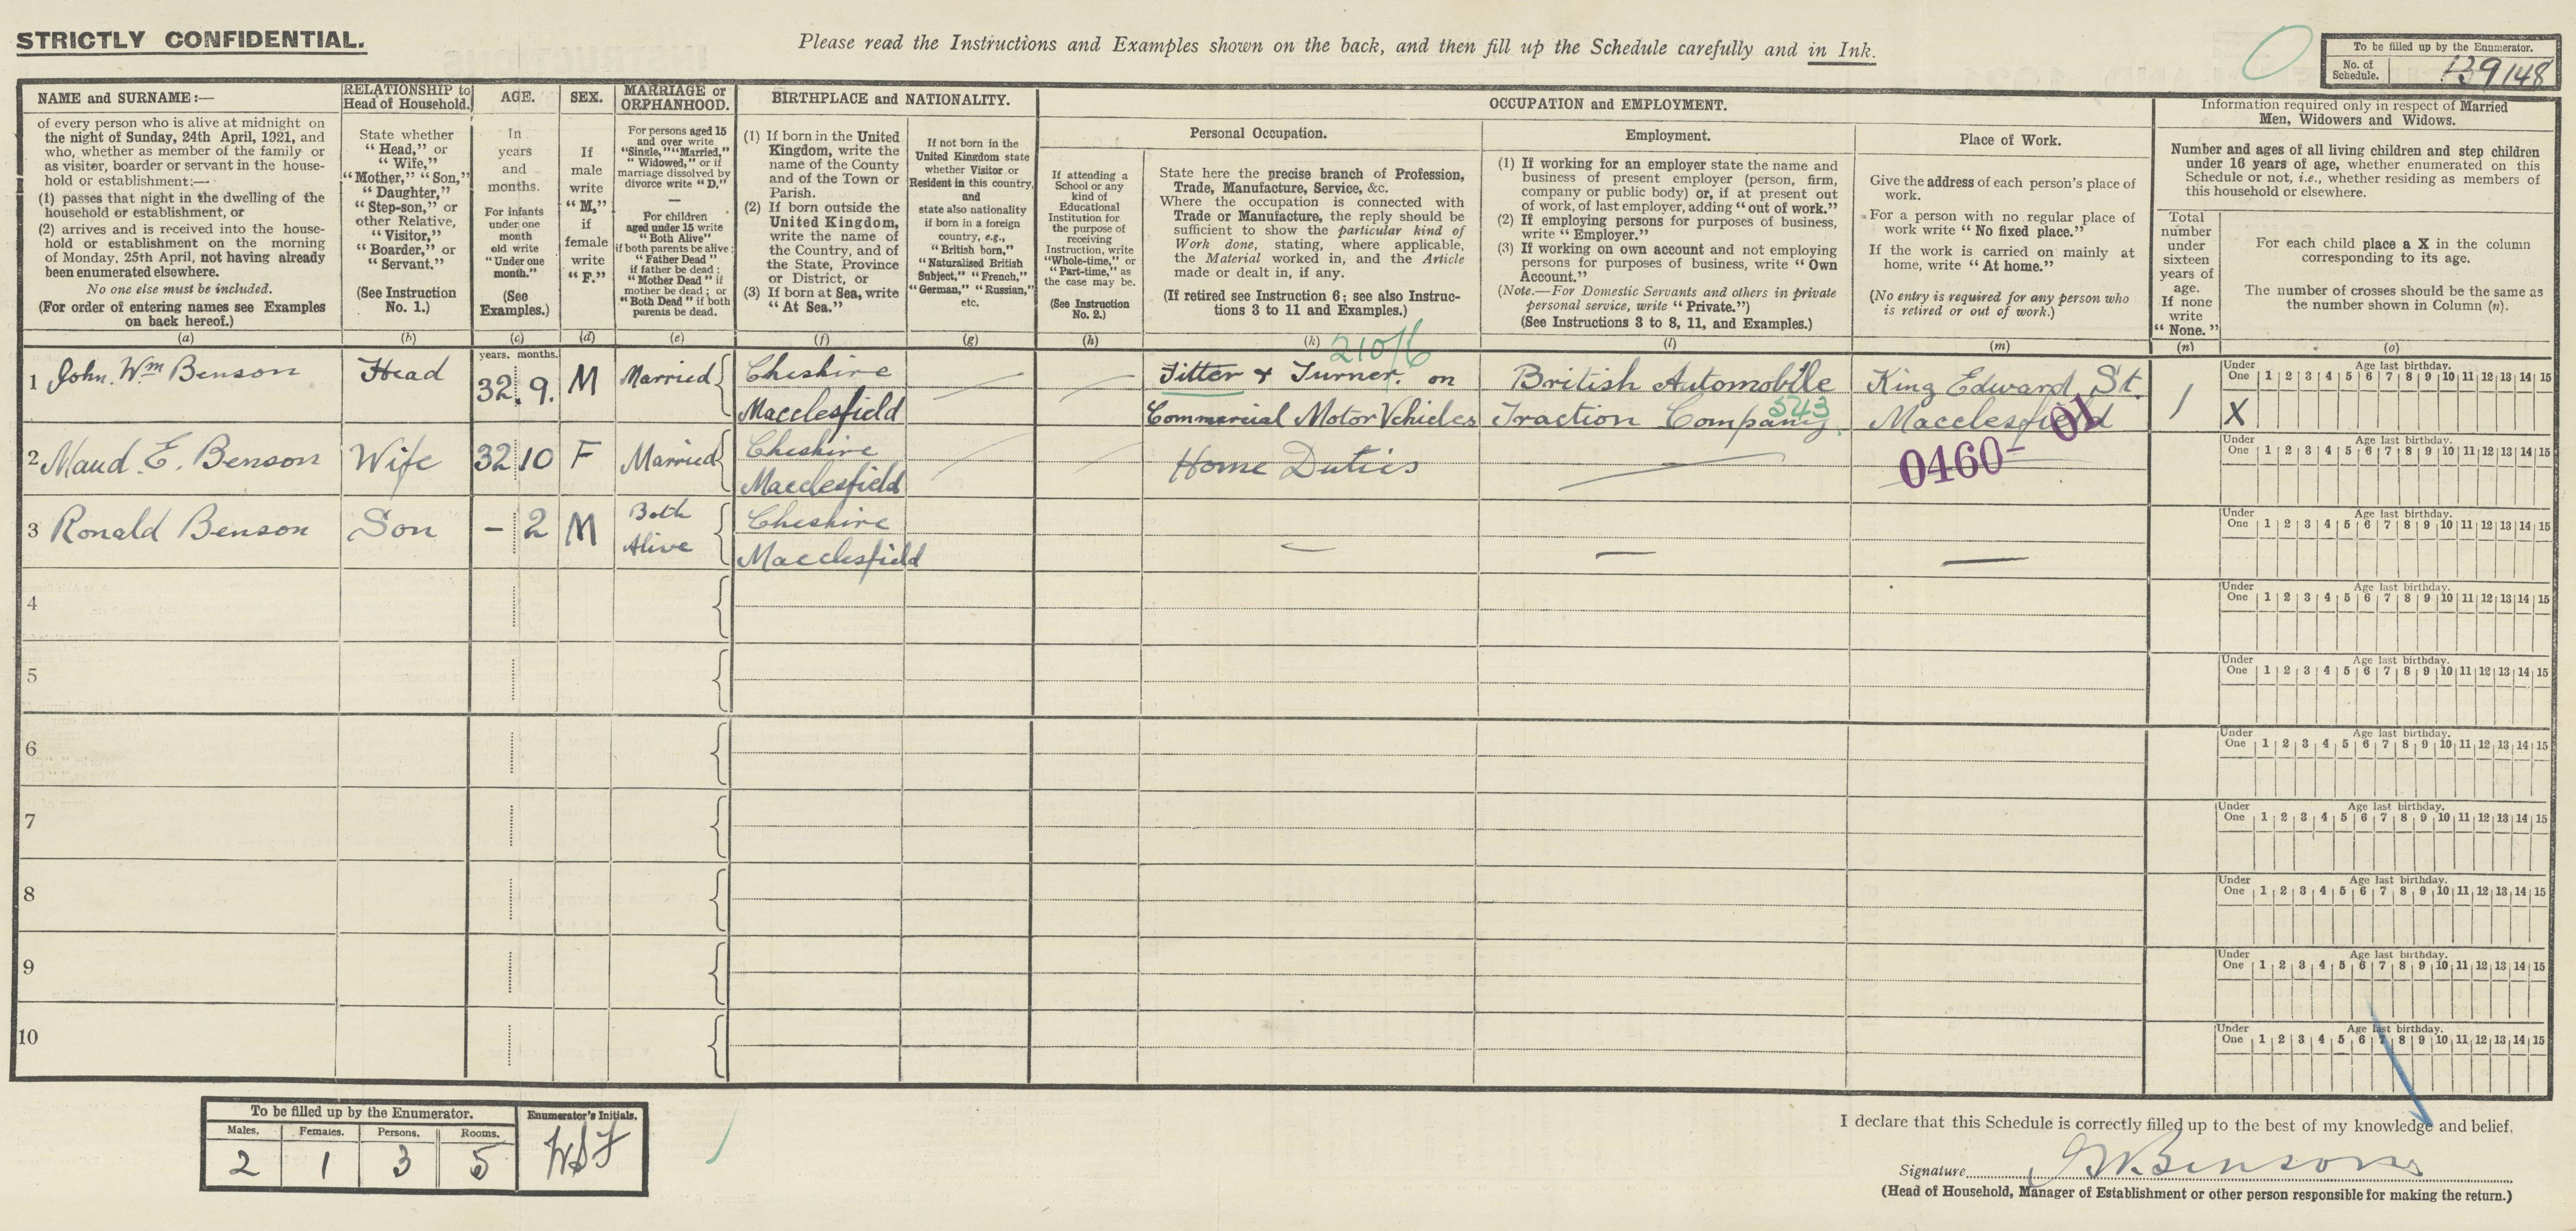 STRICTLY CONFIDENTIAL.
Please read the Instructions and Examples shown on the back, and then fill up the Schedule carefully and in Ink.
To be filled up by the Enumerator.
No. of Schedule. 148
NAME and SURNAME:—
of every person who is alive at midnight on
the night of Sunday, 24th April, 1921, and
who, whether as member of the family or
as visitor, boarder or servant in the house-
hold or establishment:—
(1) passes that night in the dwelling of the
household or establishment, or
(2) arrives and is received into the house-
hold or establishment on the morning
of Monday, 25th April, not having already
been enumerated elsewhere.
No one else must be included.
(For order of entering names see Examples
on back hereof.)
(a)
RELATIONSHIP to
Head of Household.
State whether
"Head," or
"Wife,"
"Mother," "Son,"
"Daughter,"
"Step-son," or
other Relative,
"Visitor,"
"Boarder," or
"Servant."
(See Instruction
No. 1.)
(b)
AGE.
In
years
and
months.
For infants
under one
month
old write
"Under one
month."
(See
Examples.)
(c)
SEX.
If
male
write
"M,"
if
female
write
"F."
(d)
MARRIAGE or
ORPHANHOOD.
For persons aged 15
and over write
"Single," "Married,"
"Widowed," or if
marriage dissolved by
divorce write "D."
—
For children
aged under 15 write
"Both Alive"
if both parents be alive;
"Father Dead"
if father be dead;
"Mother Dead" if
mother be dead; or
"Both Dead" if both
parents be dead.
(e)
BIRTHPLACE and NATIONALITY.
(1) If born in the United
Kingdom, write the
name of the County
and of the Town or
Parish.
(2) If born outside the
United Kingdom,
write the name of
the Country, and of
the State, Province
or District, or
(3) If born at Sea, write
"At Sea."
(f)
If not born in the
United Kingdom state
whether Visitor or
Resident in this country,
and
state also nationality
if born in a foreign
country, e.g.,
"British born,"
"Naturalised British
Subject," "French,"
"German," "Russian,"
etc.
(g)
OCCUPATION and EMPLOYMENT.
If attending a
School or any
kind of
Educational
Institution for
the purpose of
receiving
Instruction, write
"Whole-time," or
"Part-time," as
the case may be.
(See Instruction
No. 2.)
(h)
Personal Occupation.
State here the precise branch of Profession,
Trade, Manufacture, Service, &c.
Where the occupation is connected with
Trade or Manufacture, the reply should be
sufficient to show the particular kind of
Work done, stating, where applicable,
the Material worked in, and the Article
made or dealt in, if any.
(If retired see Instruction 6; see also Instruc-
tions 3 to 11 and Examples.)
(k)
Employment.
(1) If working for an employer state the name and
business of present employer (person, firm,
company or public body) or, if at present out
of work, of last employer, adding "out of work."
(2) If employing persons for purposes of business,
write "Employer."
(3) If working on own account and not employing
persons for purposes of business, write "Own
Account."
(Note.—For Domestic Servants and others in private
personal service, write "Private.")
(See Instructions 3 to 8, 11, and Examples.)
(l)
Place of Work.
Give the address of each person's place of
work.
For a person with no regular place of
work write "No fixed place."
If the work is carried on mainly at
home, write "At home."
(No entry is required for any person who
is retired or out of work.)
(m)
Information required only in respect of Married
Men, Widowers and Widows.
Number and ages of all living children and step children
under 16 years of age, whether enumerated on this
Schedule or not, i.e., whether residing as members of
this household or elsewhere.
Total
number
under
sixteen
years of
age.
If none
write
"None."
(n)
For each child place a X in the column
corresponding to its age.
The number of crosses should be the same as
the number shown in Column (n).
(o)
years. months.
210/6
1 John. Wm Benson Head 32. 9. M Married Cheshire Fitter & Turner. on British Automobile King Edward St.
Macclesfield Commercial Motor Vehicles Traction Company. Macclesfield 1 X
543
01
Under One Age last birthday. 1 2 3 4 5 6 7 8 9 10 11 12 13 14 15
2 Maud E. Benson Wife 32 10 F Married Cheshire Home Duties —
Macclesfield
0460-
Under One Age last birthday. 1 2 3 4 5 6 7 8 9 10 11 12 13 14 15
3 Ronald Benson Son - 2 M Both Cheshire
Alive Macclesfield — — —
Under One Age last birthday. 1 2 3 4 5 6 7 8 9 10 11 12 13 14 15
4
Under One Age last birthday. 1 2 3 4 5 6 7 8 9 10 11 12 13 14 15
5
Under One Age last birthday. 1 2 3 4 5 6 7 8 9 10 11 12 13 14 15
6
Under One Age last birthday. 1 2 3 4 5 6 7 8 9 10 11 12 13 14 15
7
Under One Age last birthday. 1 2 3 4 5 6 7 8 9 10 11 12 13 14 15
8
Under One Age last birthday. 1 2 3 4 5 6 7 8 9 10 11 12 13 14 15
9
Under One Age last birthday. 1 2 3 4 5 6 7 8 9 10 11 12 13 14 15
10
Under One Age last birthday. 1 2 3 4 5 6 7 8 9 10 11 12 13 14 15
To be filled up by the Enumerator.
Males. Females. Persons. Rooms.
2 1 3 5
Enumerator's Initials.
I declare that this Schedule is correctly filled up to the best of my knowledge and belief.
Signature J W. Benson
(Head of Household, Manager of Establishment or other person responsible for making the return.)